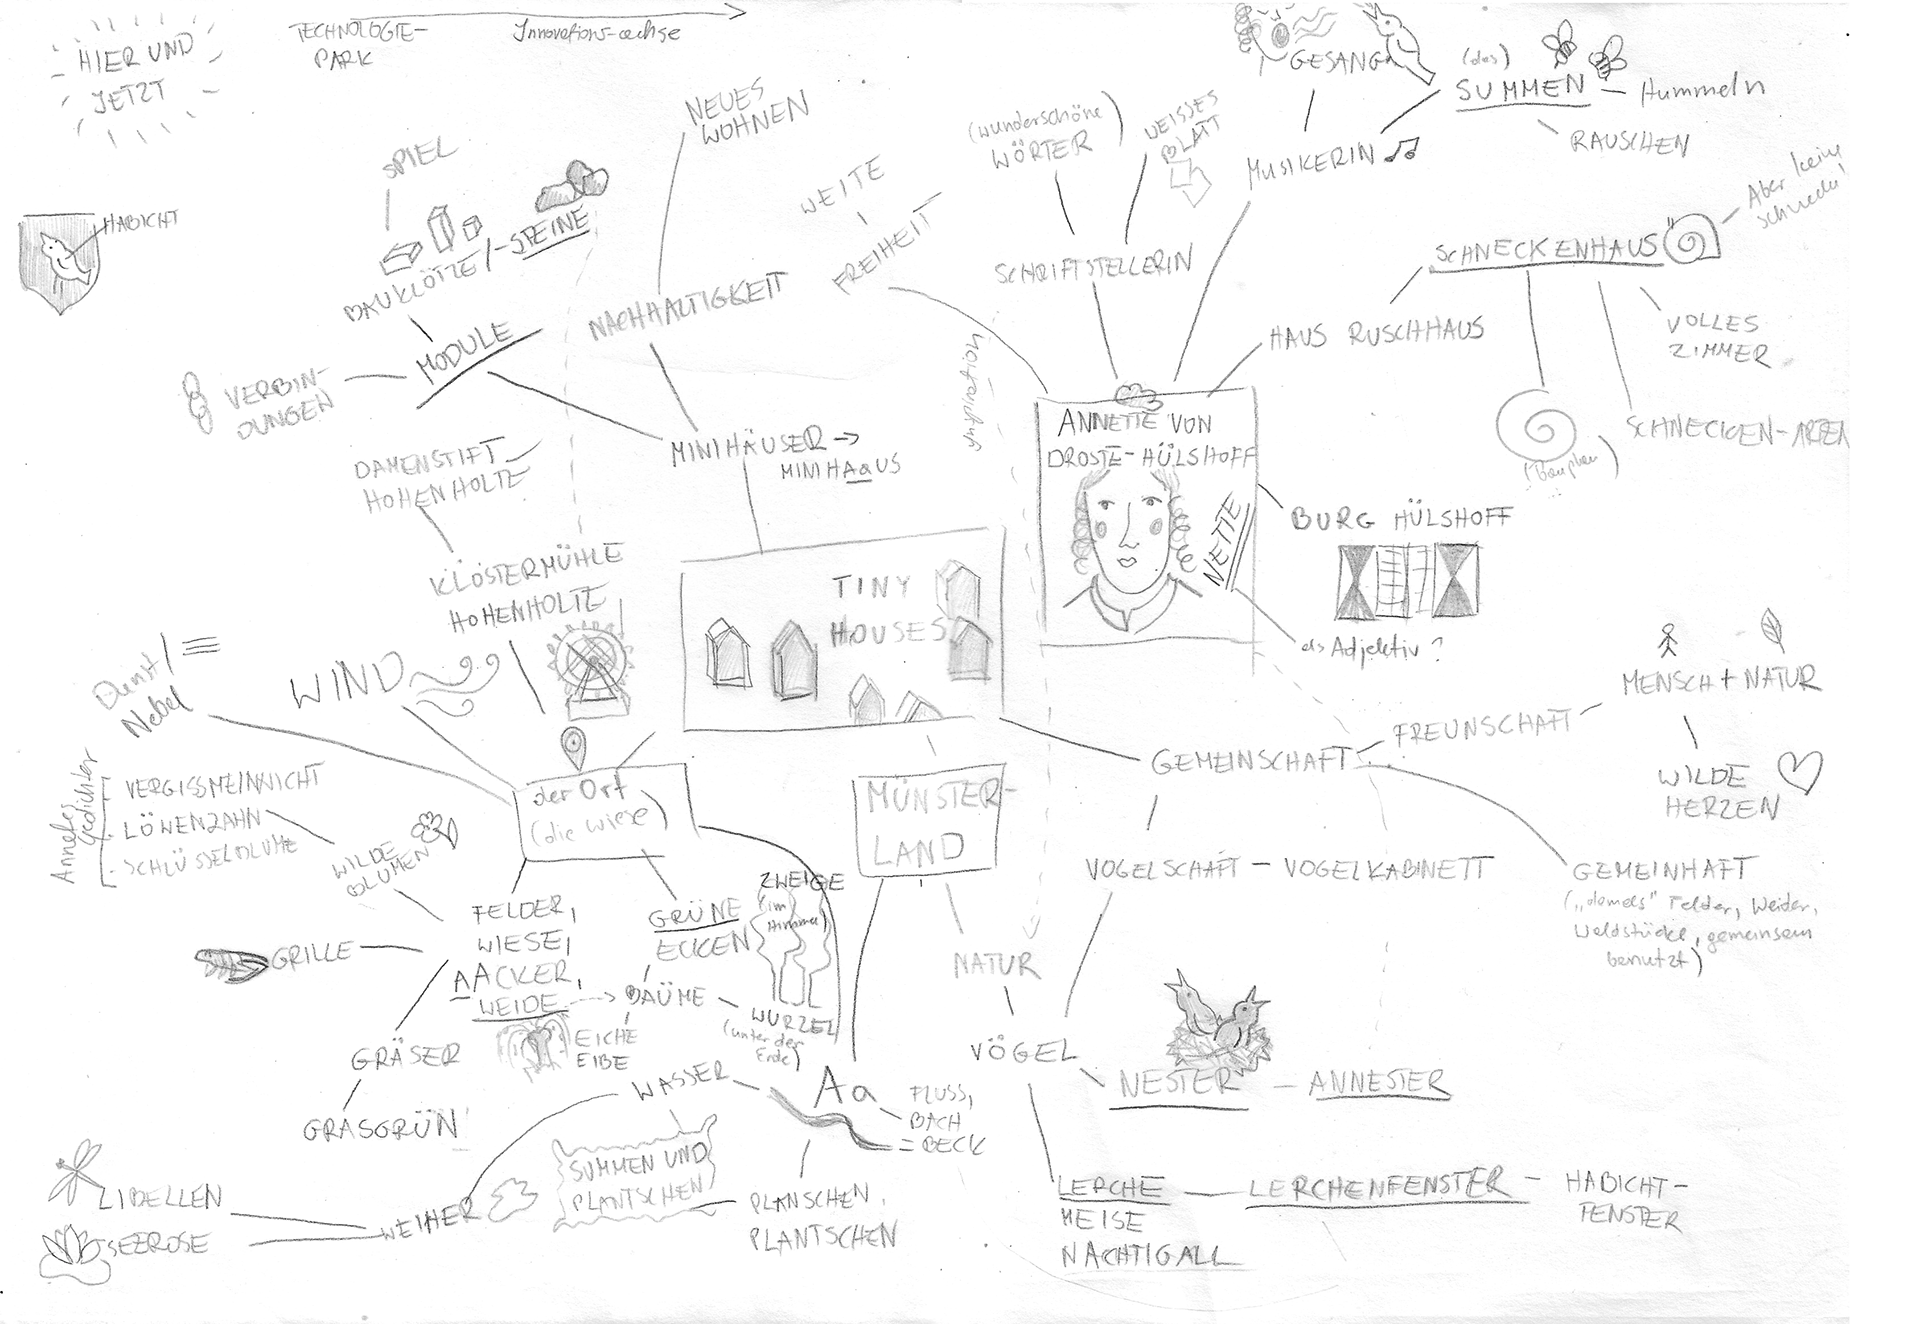 HIER UND
JETZT
TECHNOLOGIE-
PARK
Innovations-achse
HABICHT
SPIEL
BAUKLÖTZE/-STEINE
MODULE
VERBIN-
DUNGEN
NEUES
WOHNEN
NACHHALTIGKEIT
MINIHÄUSER →
MINIHAaUS
WEITE
FREIHEIT
Inspiration
(wunderschöne)
WÖRTER
WEISSES
BLATT
SCHRIFTSTELLERIN
GESANG
MUSIKERIN
(das)
SUMMEN – Hummeln
RAUSCHEN
HAUS RUSCHHAUS
SCHNECKENHAUS
Aber keine
Schnecke!
VOLLES
ZIMMER
SCHNECKEN-ARTEN
(Bauplan)
...
ANNETTE VON
DROSTE-HÜLSHOFF
NETTE
als Adjektiv?
BURG HÜLSHOFF
DAMENSTIFT
HOHENHOLTE
KLOSTERMÜHLE
HOHENHOLTE
TINY
HOUSES
Dunst
Nebel
WIND
der Ort
(die Wiese)
MÜNSTER-
LAND
Annettes
Gedichte
VERGISSMEINNICHT
LÖWENZAHN
SCHLÜSSELBLUME
WILDE
BLUMEN
FELDER,
WIESE,
AACKER,
WEIDE
GRILLE
GRÄSER
GRASGRÜN
GRÜNE
ECKEN
BÄUME
EICHE
EIBE
ZWEIGE
(im
Himmel)
WURZEL
(unter der
Erde)
WASSER
Aa
FLUSS,
BACH
= BECK
SUMMEN UND
PLANTSCHEN
PLANSCHEN,
PLANTSCHEN
WEIHER
LIBELLEN
SEEROSE
NATUR
VÖGEL
NESTER – ANNESTER
LERCHE – LERCHENFENSTER – HABICHT-
FENSTER
MEISE
NACHTIGALL
GEMEINSCHAFT
FREUNSCHAFT
MENSCH + NATUR
WILDE
HERZEN
VOGELSCHAFT – VOGELKABINETT
GEMEINHAFT
(„damals" Felder, Weiden,
Waldstücke, gemeinsam
benutzt)